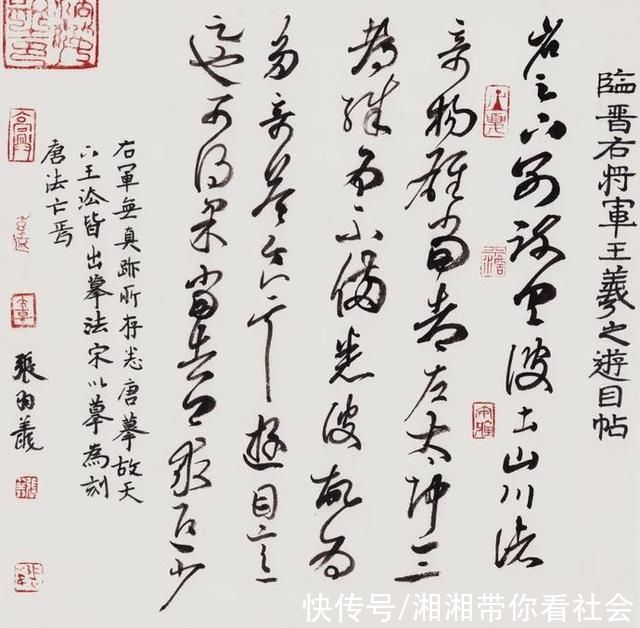 臨晉右將軍王羲之遊目帖
省足下別疏具彼土山川諸
奇揚雄蜀都左太沖三
都殊為不備悉彼故為
多奇益令其遊目意
足也可得果當告卿求迎少
右軍無真跡所存悉唐摹故天
下王法皆出摹法宋以摹為刻
唐法亡焉
張羽羲
快传号/湘湘带你看社会